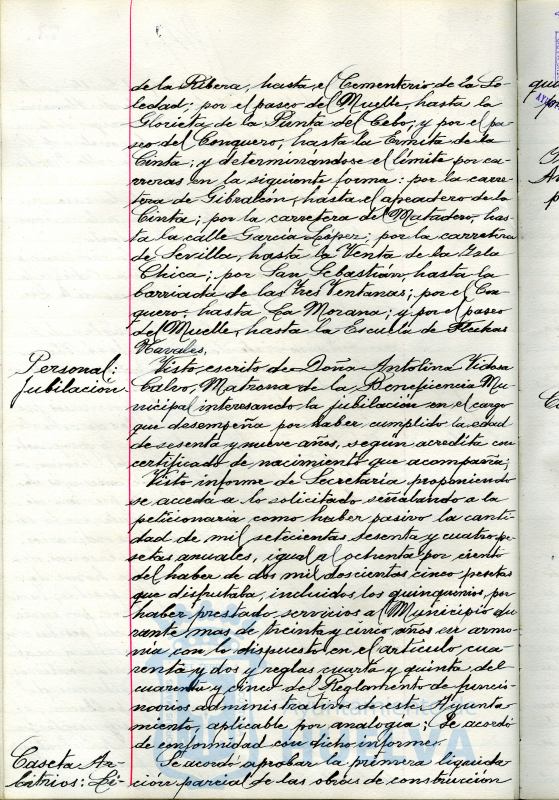 de la Ribera, hasta el Cementerio de la So-
ledad; por el paseo del Muelle, hasta la
Glorieta de la Punta del Cebo; y por el pa-
seo del Conquero, hasta la Ermita de la
Cinta; y determinandose el limite por ca-
rreras en la siguiente forma: por la carre-
tera de Gibraleón, hasta el apeadero de la
Cinta; por la carretera del Matadero, has-
ta la calle García López; por la carretera
de Sevilla, hasta la Venta de la Isla
Chica; por San Sebastián, hasta la
barriada de las Tres Ventanas; por el Con-
quero, hasta La Morana; y por el paseo
del Muelle, hasta la Escuela de Flechas
Navales.
Personal:
Jubilación
Visto escrito de Doña Antolina Vidosa
Calvo, Matrona de la Beneficencia Mu-
nicipal interesando la jubilación en el cargo
que desempeña por haber cumplido la edad
de sesenta y nueve años, según acredita con
certificado de nacimiento que acompaña;
Visto informe de Secretaria proponiendo
se acceda a lo solicitado señalando a la
peticionaria como haber pasivo la canti-
dad de mil setecientas sesenta y cuatro pe-
setas anuales, igual al ochenta por ciento
del haber de dos mil doscientas cinco pesetas
que disfrutaba, incluidos los quinquenios, por
haber prestado servicios al Municipio du-
rante mas de treinta y cinco años en armo-
nia con lo dispuesto en el articulo cua-
renta y dos y reglas cuarta y quinta del
cuarenta y cinco del Reglamento de funcio-
narios administrativos de este Ayunta-
miento, aplicable por analogía; Se acordó
de conformidad con dicho informe.
Caseta Ar-
bitrios: Li-
Se acordó aprobar la primera liquida-
ción parcial de las obras de construcción
Ayuntamiento de
HUELVA